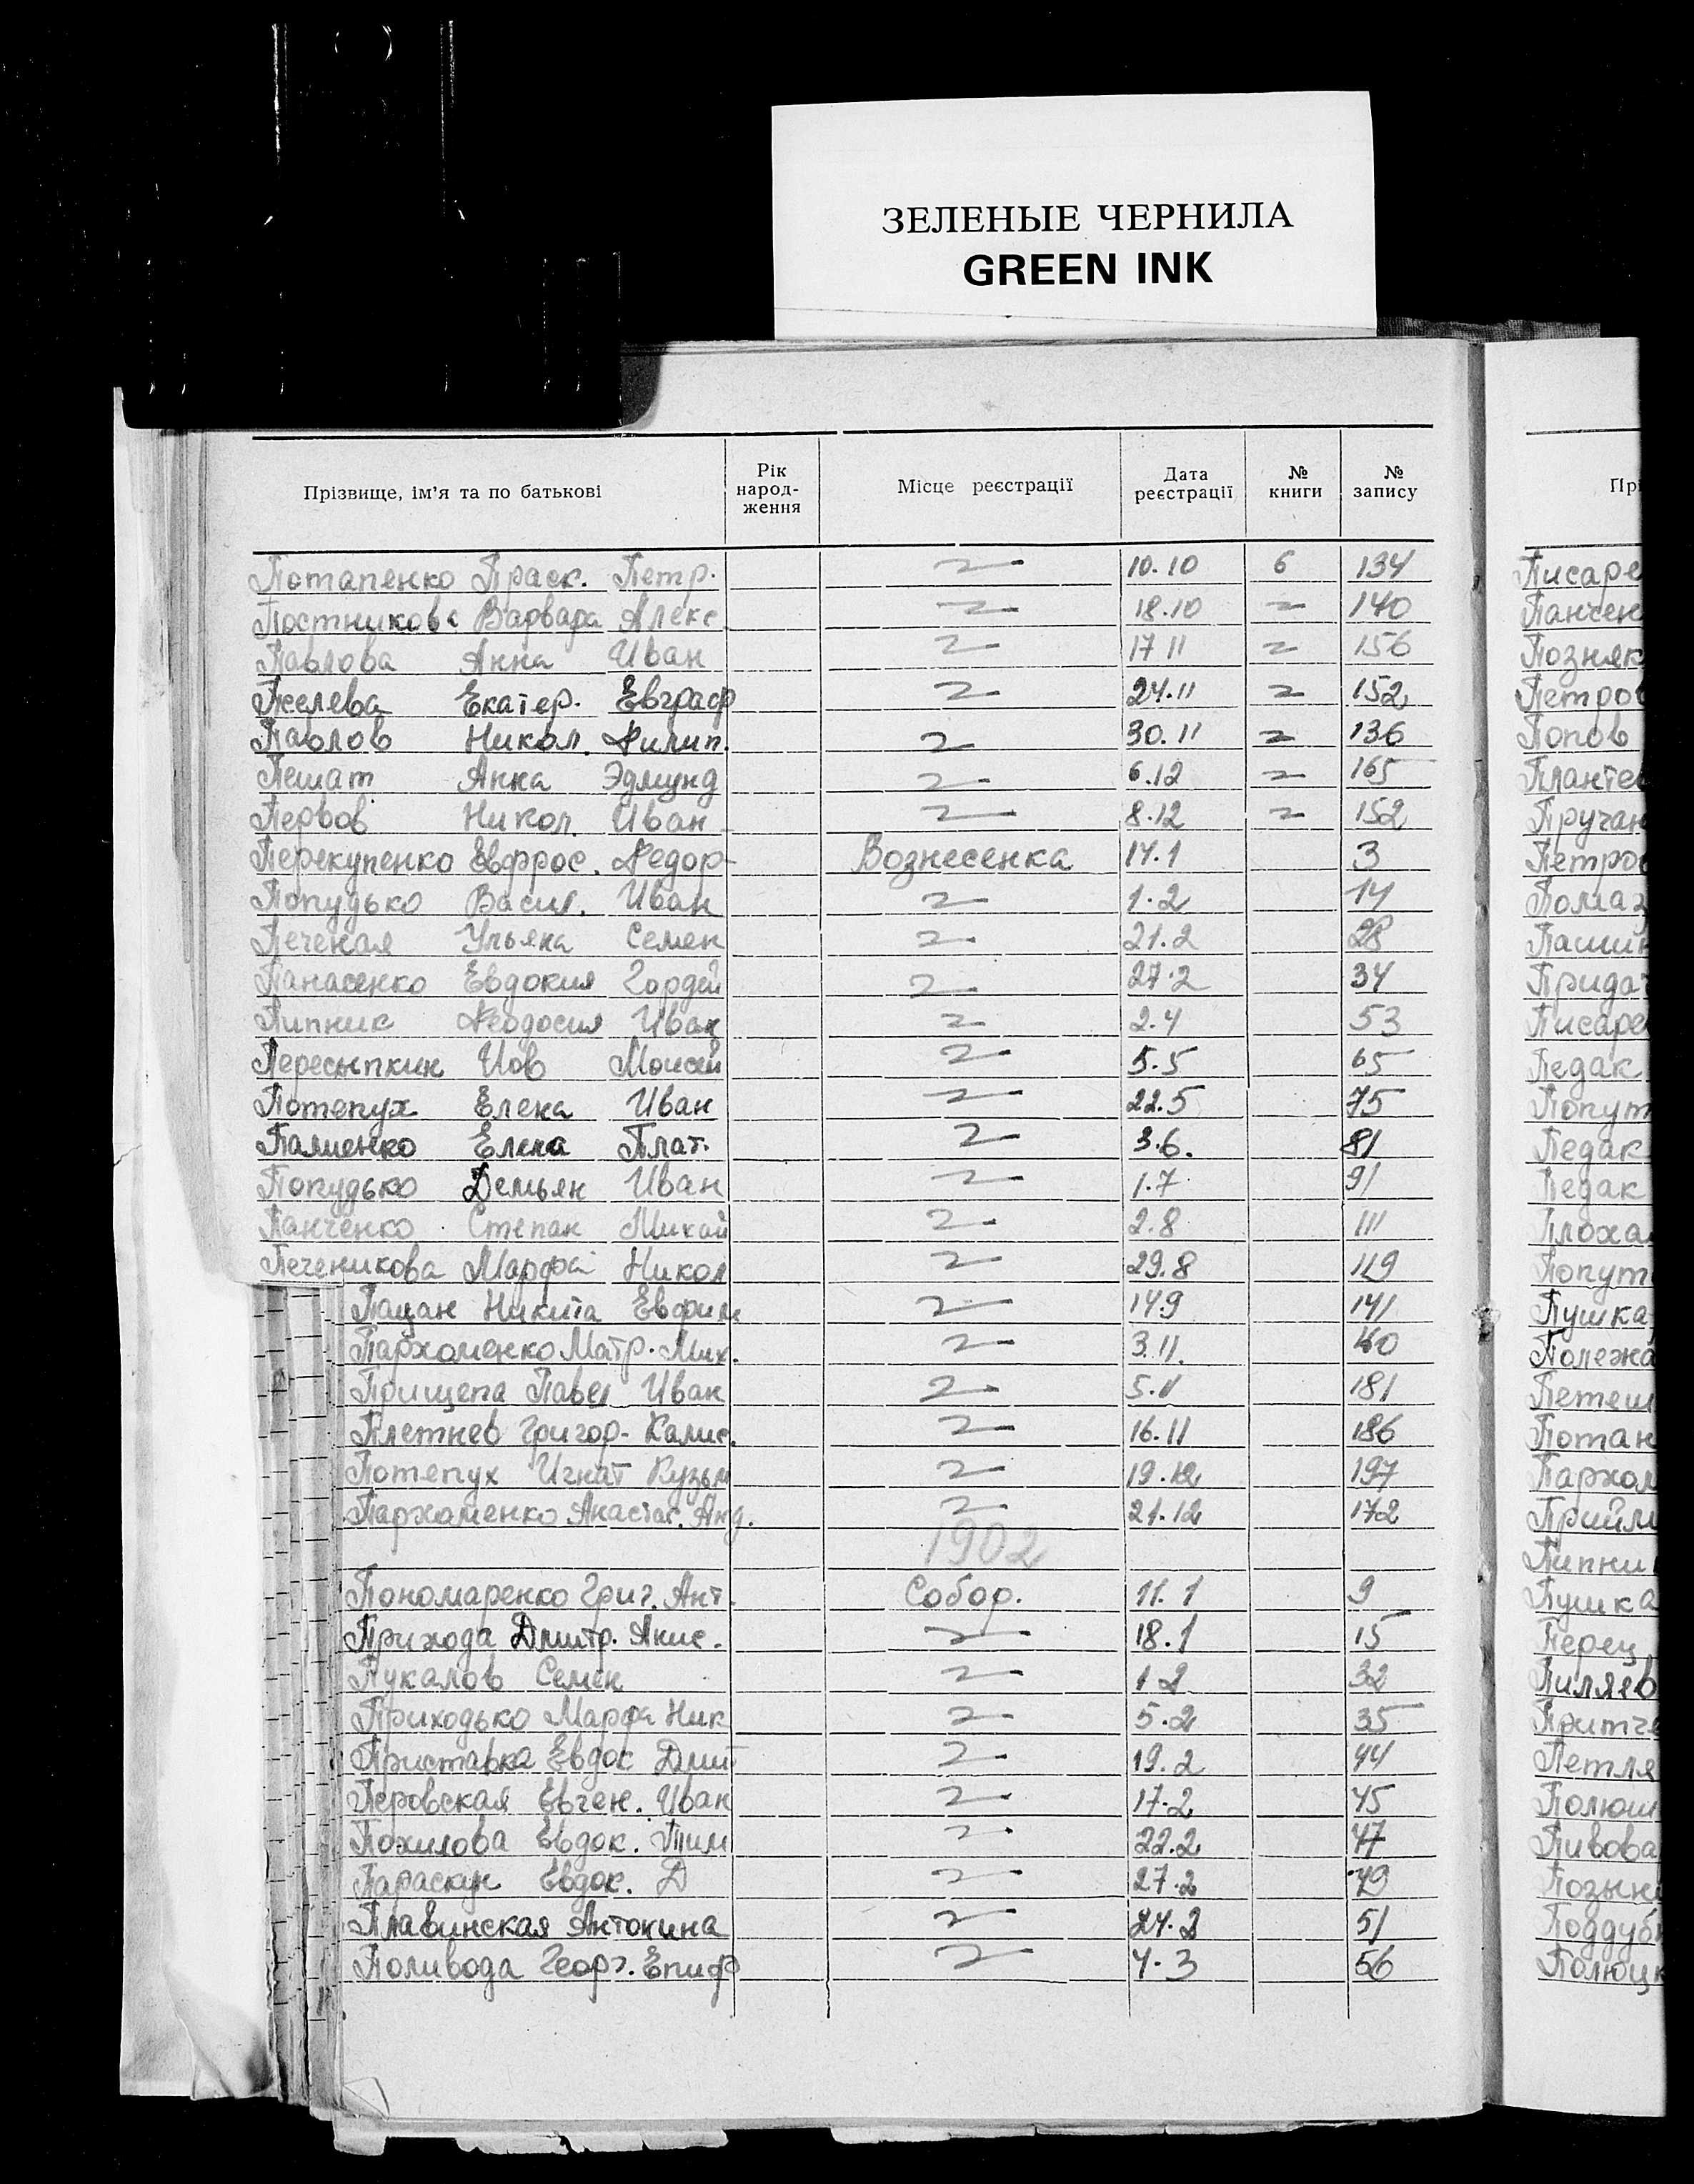 ЗЕЛЕНЫЕ ЧЕРНИЛА
GREEN INK
Прізвище, ім'я та по батькові Рік народ- ження Місце реєстрації Дата реєстрації № книги № запису
Потапенко Праск. Петр. 10.10 6 134
Постникова Варвара Алекс. 18.10 140
Павлова Анна Иван 17 11 156
Екатер. Евграф 24.11 152
Павлов Никол. Филип. 30.11 136
Пешат Анна Эдмунд 6.12 165
Первов Никол. Иван 8.12 152
Перекупенко Евфрос. Федор Вознесенка 14.1 3
Попудько Васил. Иван 1.2 14
Печеная Ульяна Семен 21.2 28
Панасенко Евдокия Гордей 27.2 34
Липник Феодосия Иван 2.4 53
Пересыпкин Иов Моисей 5.5 65
Потепух Елена Иван 22.5 75
Палиенко Елена Плат. 3.6. 81
Попудько Демьян Иван 1.7 91
Панченко Степан Михай 2.8 111
Печеникова Марфа Никол 29.8 119
Пацан Никита Евфим 14.9 141
Пархоменко Матр. Мих. 3.11.
Прищепа Павел Иван 181
Плетнев Григор. Калис. 16.11 186
Потепух Игнат Кузьм 19.12 197
Пархоменко Анастас. Анд. 21.12 172
1902
Пономаренко Григ. Ант. Собор. 11.1 9
Прихода Дмитр. Анис. 18.1 15
Пукалов Семен 1 2 32
Приходько Марфа Ник 5.2 35
Приставка Евдок Дмит 19.2 44
Перовская Евген. Иван 17.2 45
Похилова Евдок. Тим 22.2 47
Параскун Евдок. Д 27.2 49
Плавинская Антонина 24.2 51
Поливода Георг. Епиф 4.3 56
Прі
Писаре
Панчен
Позняк
Петров
Попов
Плантев
Пручан
Петров
Помаз
Пашин
Придат
Писаре
Педак
Попут
Педак
Педак
Плоха
Попут
Пушка
Полежа
Петеш
Потан
Пархом
Прийм
Липни
Пушка
Перец
Пиляев
Притче
Петля
Полюш
Пивова
Позын
Поддуб
Полюцк